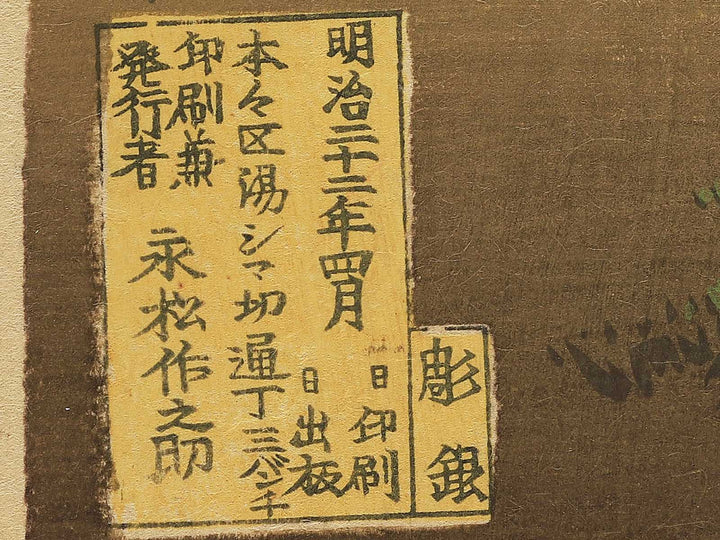 明治二十二年四月
日印刷
日出板
本々区湯シマ切通丁三バンチ
印刷兼
発行者
永松作之助
彫銀